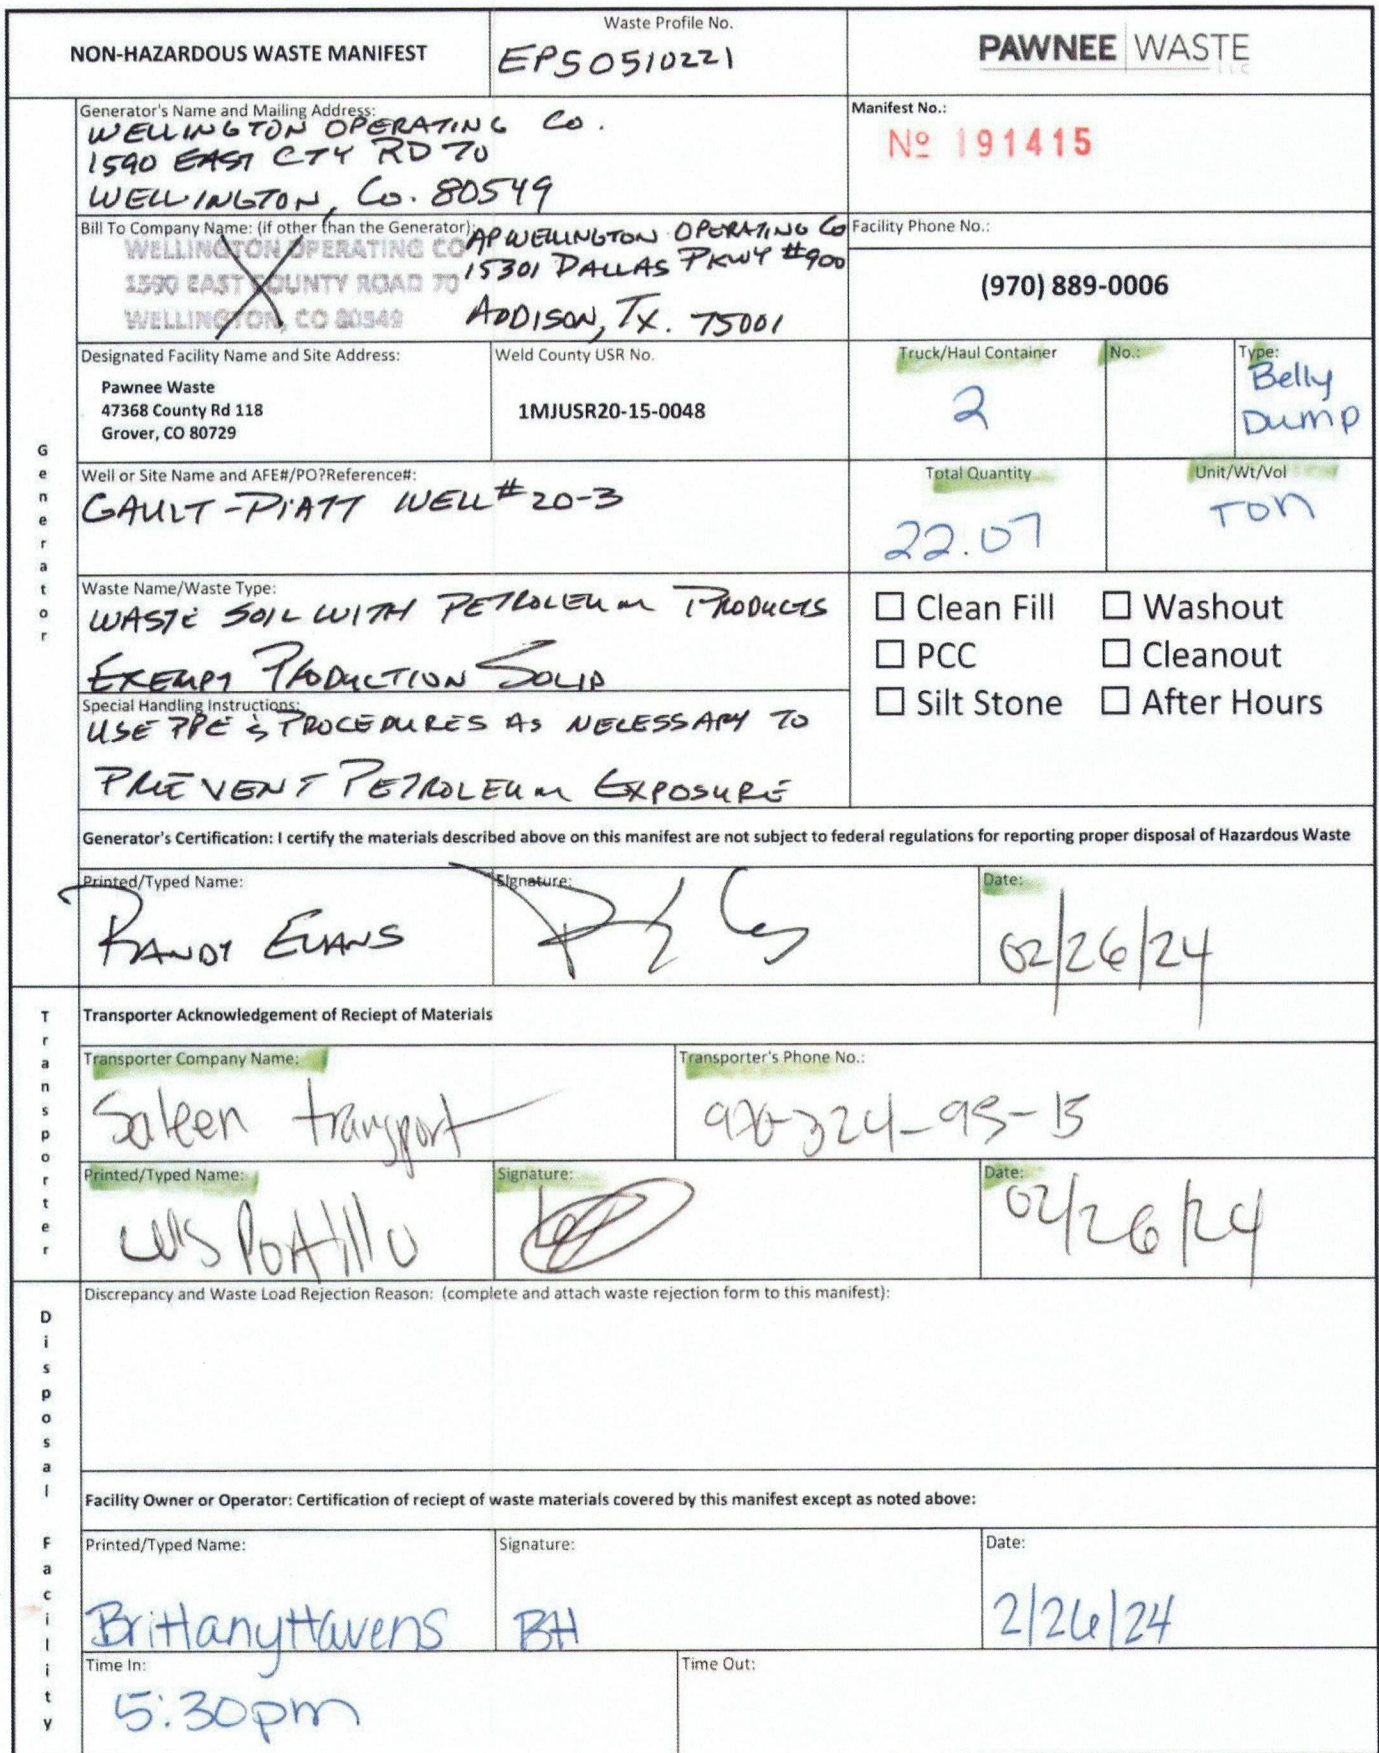 NON-HAZARDOUS WASTE MANIFEST
Waste Profile No.
EPS0510221
PAWNEE WASTE
LLC
Generator's Name and Mailing Address:
WELLINGTON OPERATING Co.
1590 EAST CTY RD 70
WELLINGTON, Co. 80549
Manifest No.:
№ 191415
Bill To Company Name: (if other than the Generator):
WELLINGTON OPERATING CO
1590 EAST COUNTY ROAD 70
WELLINGTON, CO 80549
AP WELLINGTON OPERATING Co
15301 DALLAS PKWY #900
ADDISON, TX. 75001
Facility Phone No.:
(970) 889-0006
Designated Facility Name and Site Address:
Pawnee Waste
47368 County Rd 118
Grover, CO 80729
Weld County USR No.
1MJUSR20-15-0048
Truck/Haul Container
2
No.:
Type:
Belly
Dump
Well or Site Name and AFE#/PO?Reference#:
GAULT-PIATT WELL #20-3
Total Quantity
22.07
Unit/Wt/Vol
Ton
Waste Name/Waste Type:
WASTE SOIL WITH PETROLEUM PRODUCTS
EXEMPT PRODUCTION SOLID
☐ Clean Fill ☐ Washout
☐ PCC ☐ Cleanout
☐ Silt Stone ☐ After Hours
Special Handling Instructions:
USE PPE & PROCEDURES AS NECESSARY TO
PREVENT PETROLEUM EXPOSURE
Generator's Certification: I certify the materials described above on this manifest are not subject to federal regulations for reporting proper disposal of Hazardous Waste
Printed/Typed Name:
RANDY EVANS
Signature:
Date:
02/26/24
Generator
Transporter Acknowledgement of Reciept of Materials
Transporter Company Name:
Saleen transport
Transporter's Phone No.:
970-324-95-15
Printed/Typed Name:
Luis Portillo
Signature:
Date:
02/26/24
Transporter
Discrepancy and Waste Load Rejection Reason: (complete and attach waste rejection form to this manifest):
Facility Owner or Operator: Certification of reciept of waste materials covered by this manifest except as noted above:
Printed/Typed Name:
Brittany Havens
Signature:
BH
Date:
2/26/24
Time In:
5:30pm
Time Out:
Disposal Facility